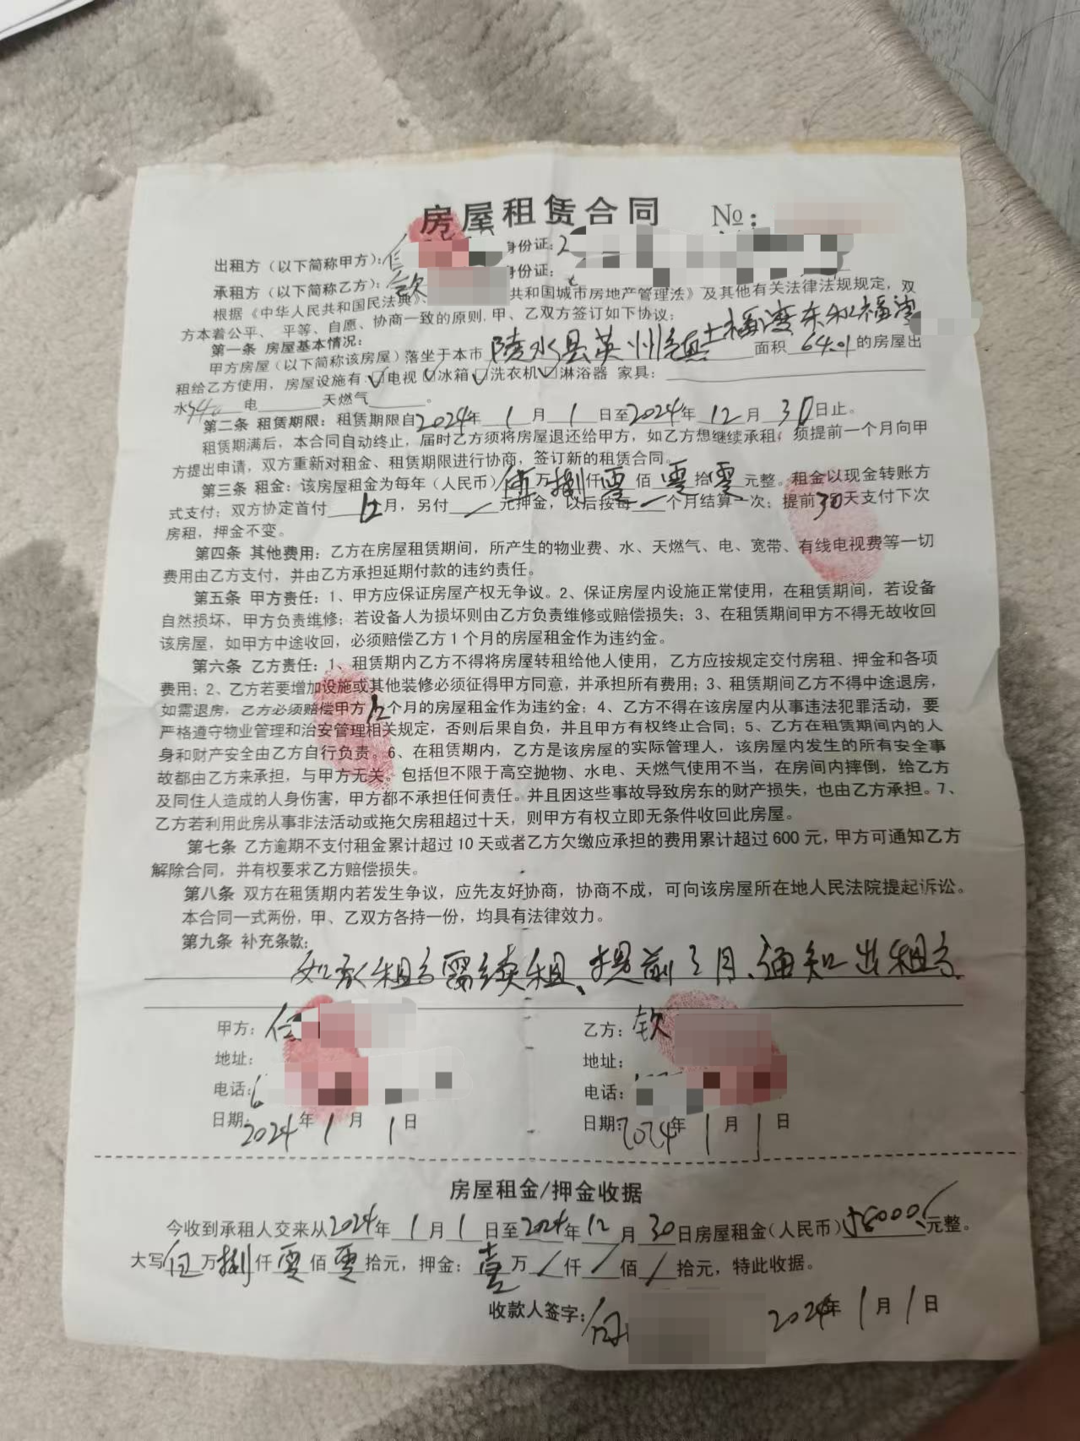 房屋租赁合同 №:
出租方（以下简称甲方）： 身份证：2
承租方（以下简称乙方）：钦 身份证：
根据《中华人民共和国民法典》 共和国城市房地产管理法》及其他有关法律法规规定，双
方本着公平、平等、自愿、协商一致的原则.甲、乙双方签订如下协议：
第一条 房屋基本情况：
甲方房屋（以下简称该房屋）落坐于本市 陵水县英州镇土福湾东和福湾 面积 64.01 的房屋出
租给乙方使用，房屋设施有：☑电视☑冰箱☑洗衣机☑淋浴器 家具：
水 电 天燃气 。
第二条 租赁期限：租赁期限自2024年 1 月 1 日至2024年 12 月 30日止。
租赁期满后，本合同自动终止，届时乙方须将房屋退还给甲方，如乙方想继续承租，须提前一个月向甲
方提出申请，双方重新对租金、租赁期限进行协商，签订新的租赁合同。
第三条 租金：该房屋租金为每年（人民币）伍万捌仟零佰零拾零元整。租金以现金转账方
式支付；双方协定首付 月，另付 元押金，以后按每 个月结算一次；提前30天支付下次
房租，押金不变。
第四条 其他费用：乙方在房屋租赁期间，所产生的物业费、水、天燃气、电、宽带、有线电视费等一切
费用由乙方支付，并由乙方承担延期付款的违约责任。
第五条 甲方责任：1、甲方应保证房屋产权无争议。2、保证房屋内设施正常使用，在租赁期间，若设备
自然损坏，甲方负责维修；若设备人为损坏则由乙方负责维修或赔偿损失；3、在租赁期间甲方不得无故收回
该房屋，如甲方中途收回，必须赔偿乙方1个月的房屋租金作为违约金。
第六条 乙方责任：1、租赁期内乙方不得将房屋转租给他人使用，乙方应按规定交付房租、押金和各项
费用；2、乙方若要增加设施或其他装修必须征得甲方同意，并承担所有费用；3、租赁期间乙方不得中途退房，
如需退房，乙方必须赔偿甲方 个月的房屋租金作为违约金；4、乙方不得在该房屋内从事违法犯罪活动，要
严格遵守物业管理和治安管理相关规定，否则后果自负，并且甲方有权终止合同；5、乙方在租赁期间内的人
身和财产安全由乙方自行负责。6、在租赁期内，乙方是该房屋的实际管理人，该房屋内发生的所有安全事
故都由乙方来承担，与甲方无关。包括但不限于高空抛物、水电、天燃气使用不当，在房间内摔倒，给乙方
及同住人造成的人身伤害，甲方都不承担任何责任。并且因这些事故导致房东的财产损失，也由乙方承担。7、
乙方若利用此房从事非法活动或拖欠房租超过十天，则甲方有权立即无条件收回此房屋。
第七条 乙方逾期不支付租金累计超过10天或者乙方欠缴应承担的费用累计超过600元，甲方可通知乙方
解除合同，并有权要求乙方赔偿损失。
第八条 双方在租赁期内若发生争议，应先友好协商，协商不成，可向该房屋所在地人民法院提起诉讼。
本合同一式两份，甲、乙双方各持一份，均具有法律效力。
第九条 补充条款：
如承租方需续租、提前3月、通知出租方
甲方： 乙方：钦
地址： 地址：
电话： 电话：
日期：2024年 1 月 1 日 日期：2024年 1 月 1 日
房屋租金/押金收据
今收到承租人交来从2024年 1 月 1 日至2024年 12 月 30日房屋租金（人民币）58000元整。
大写伍万捌仟零佰零拾元，押金：壹万/仟/佰/拾元，特此收据。
收款人签字： 2024年 1 月 1 日